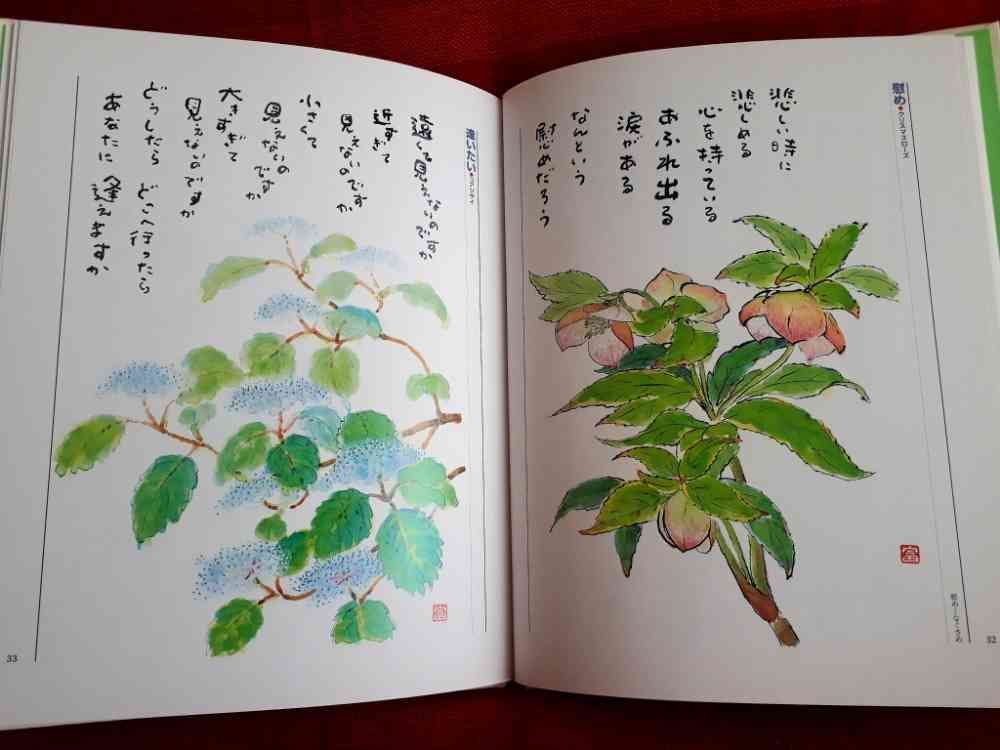 慰め●クリスマスローズ
悲しい時に
悲しめる
心を持っている
あふれ出る
涙がある
なんという
慰めだろう
慰め—なぐさめ
32
逢いたい●コアジサイ
遠くて見えないのですか
近すぎて
見えないのですか
小さくて
見えないのですか
大きすぎて
見えないのですか
どうしたら どこへ行ったら
あなたに 逢えますか
33